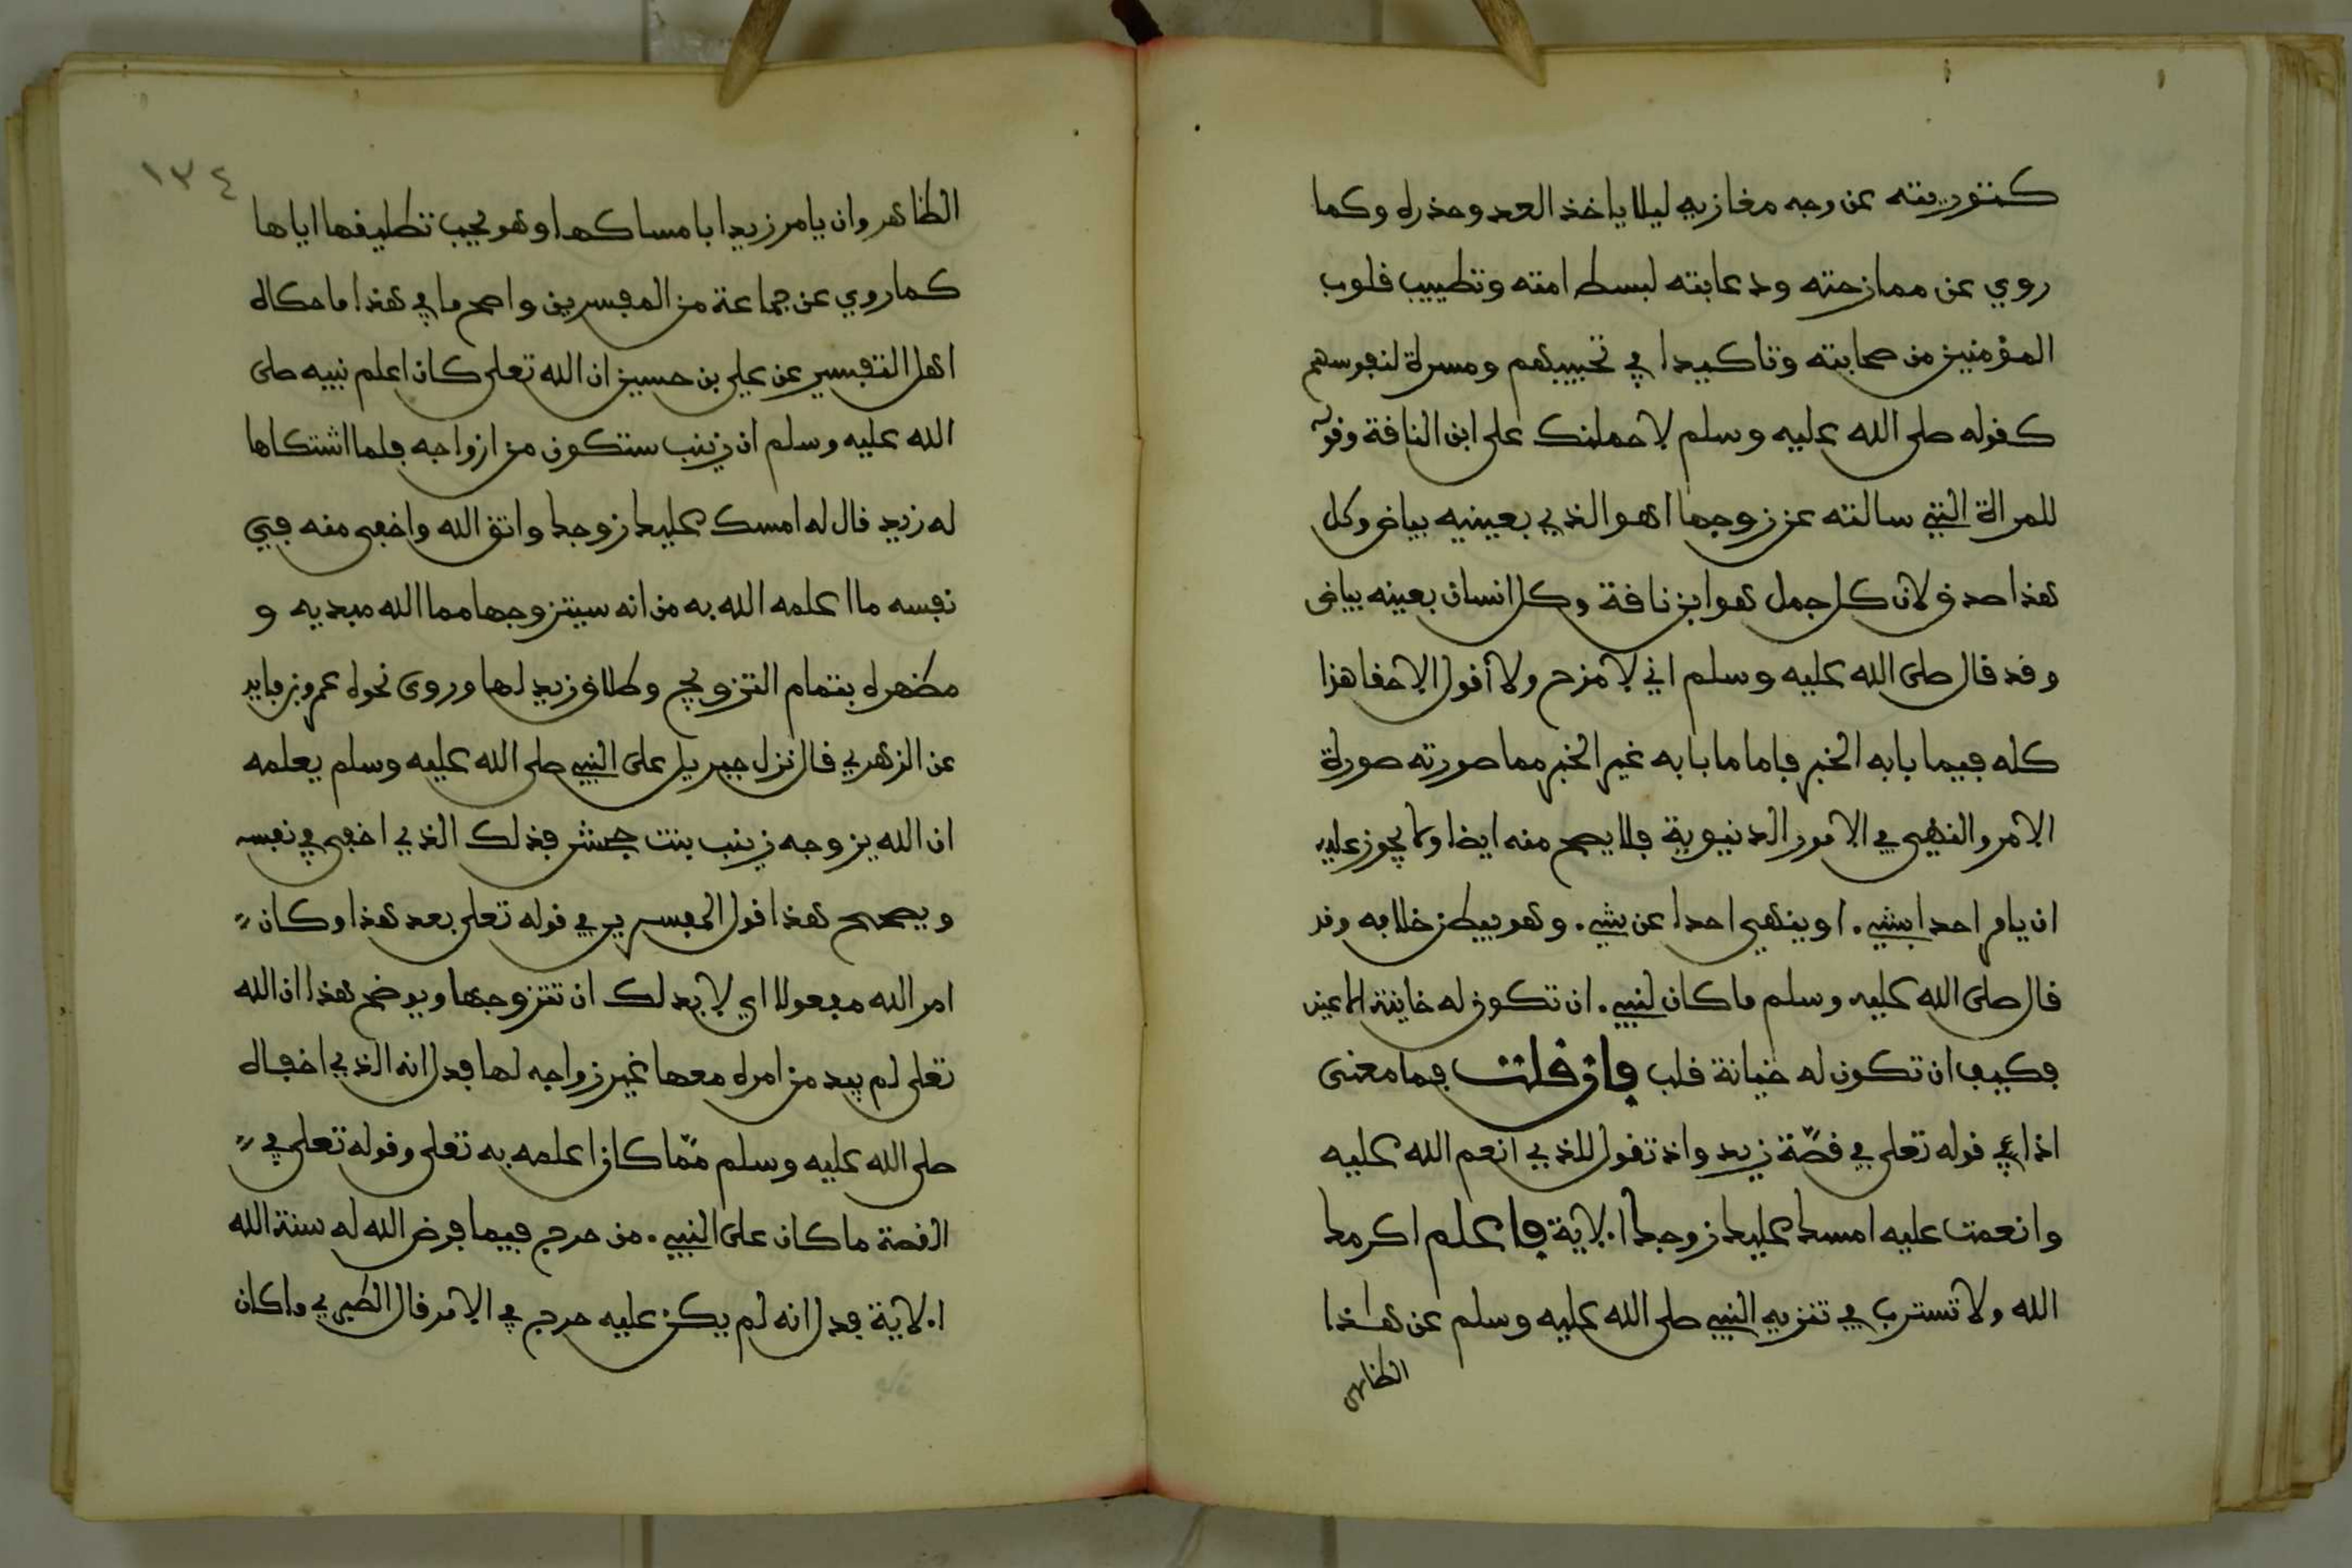 كتوريته عن وجه مغازيه ليلا ياخذ العدو حذره وكما
روي عن ممازحته ودعابته لبسط امته وتطييب قلوب
المؤمنين من صحابته وتاكيدا في تحببهم ومسرة لنفوسهم
كقوله صلى الله عليه وسلم لاحملنك على ابن الناقة وقوله
للمراة التي سالته عن زوجها اهو الذي بعينيه بياض وكل
هذا صدق لان كل جمل هو ابن ناقة وكل انسان بعينه بياض
وقد قال صلى الله عليه وسلم اني لامزح ولا أقول الا حقا هذا
كله فيما بابه الخبر فاما ما بابه غير الخبر مما صورته صورة
الامر والنهي في الامور الدنيوية فلا يصح منه ايضا ولا يجوز عليه
ان يامر احدا بشيء او ينهى احدا عن شيء وهو يبطن خلافه وقد
قال صلى الله عليه وسلم ما كان لنبي ان تكون له خاينة الاعين
فكيف ان تكون له خيانة قلب فان قلت فما معنى
اذا في قوله تعلى في قصّة زيد واذ تقول للذي انعم الله عليه
وانعمت عليه امسك عليك زوجك الاية فاعلم اكرمك
الله ولا تسترب في تنزيه النبي صلى الله عليه وسلم عن هذا
الظاهر
١٣٤
الظاهر وان يامر زيدا بامساكها وهو يحب تطليقها اياها
كما روي عن جماعة من المفسرين واصح ما في هذا ما حكاه
اهل التفسير عن علي بن حسين ان الله تعلى كان اعلم نبيه صلى
الله عليه وسلم ان زينب ستكون من ازواجه فلما اشتكاها
له زيد قال له امسك عليك زوجك واتق الله واخفى منه في
نفسه ما اعلمه الله به من انه سيتزوجها مما الله مبديه و
مظهره بتمام التزويج وطلاق زيد لها وروى نحوه عمرو بن فايد
عن الزهري قال نزل جبريل على النبي صلى الله عليه وسلم يعلمه
ان الله يزوجه زينب بنت جحش فذلك الذي اخفى في نفسه
ويصحح هذا قول المفسرين في قوله تعلى بعد هذا وكان
امر الله مفعولا اي لا بد لك ان تتزوجها ويوضح هذا ان الله
تعلى لم يبد من امره معها غير زواجه لها فدل انه الذي اخفاه
صلى الله عليه وسلم ممّا كان اعلمه به تعلى وقوله تعلى في
القصة ما كان على النبي من حرج فيما فرض الله له سنة الله
الاية فدل انه لم يكن عليه حرج في الامر قال الطبري وما كان